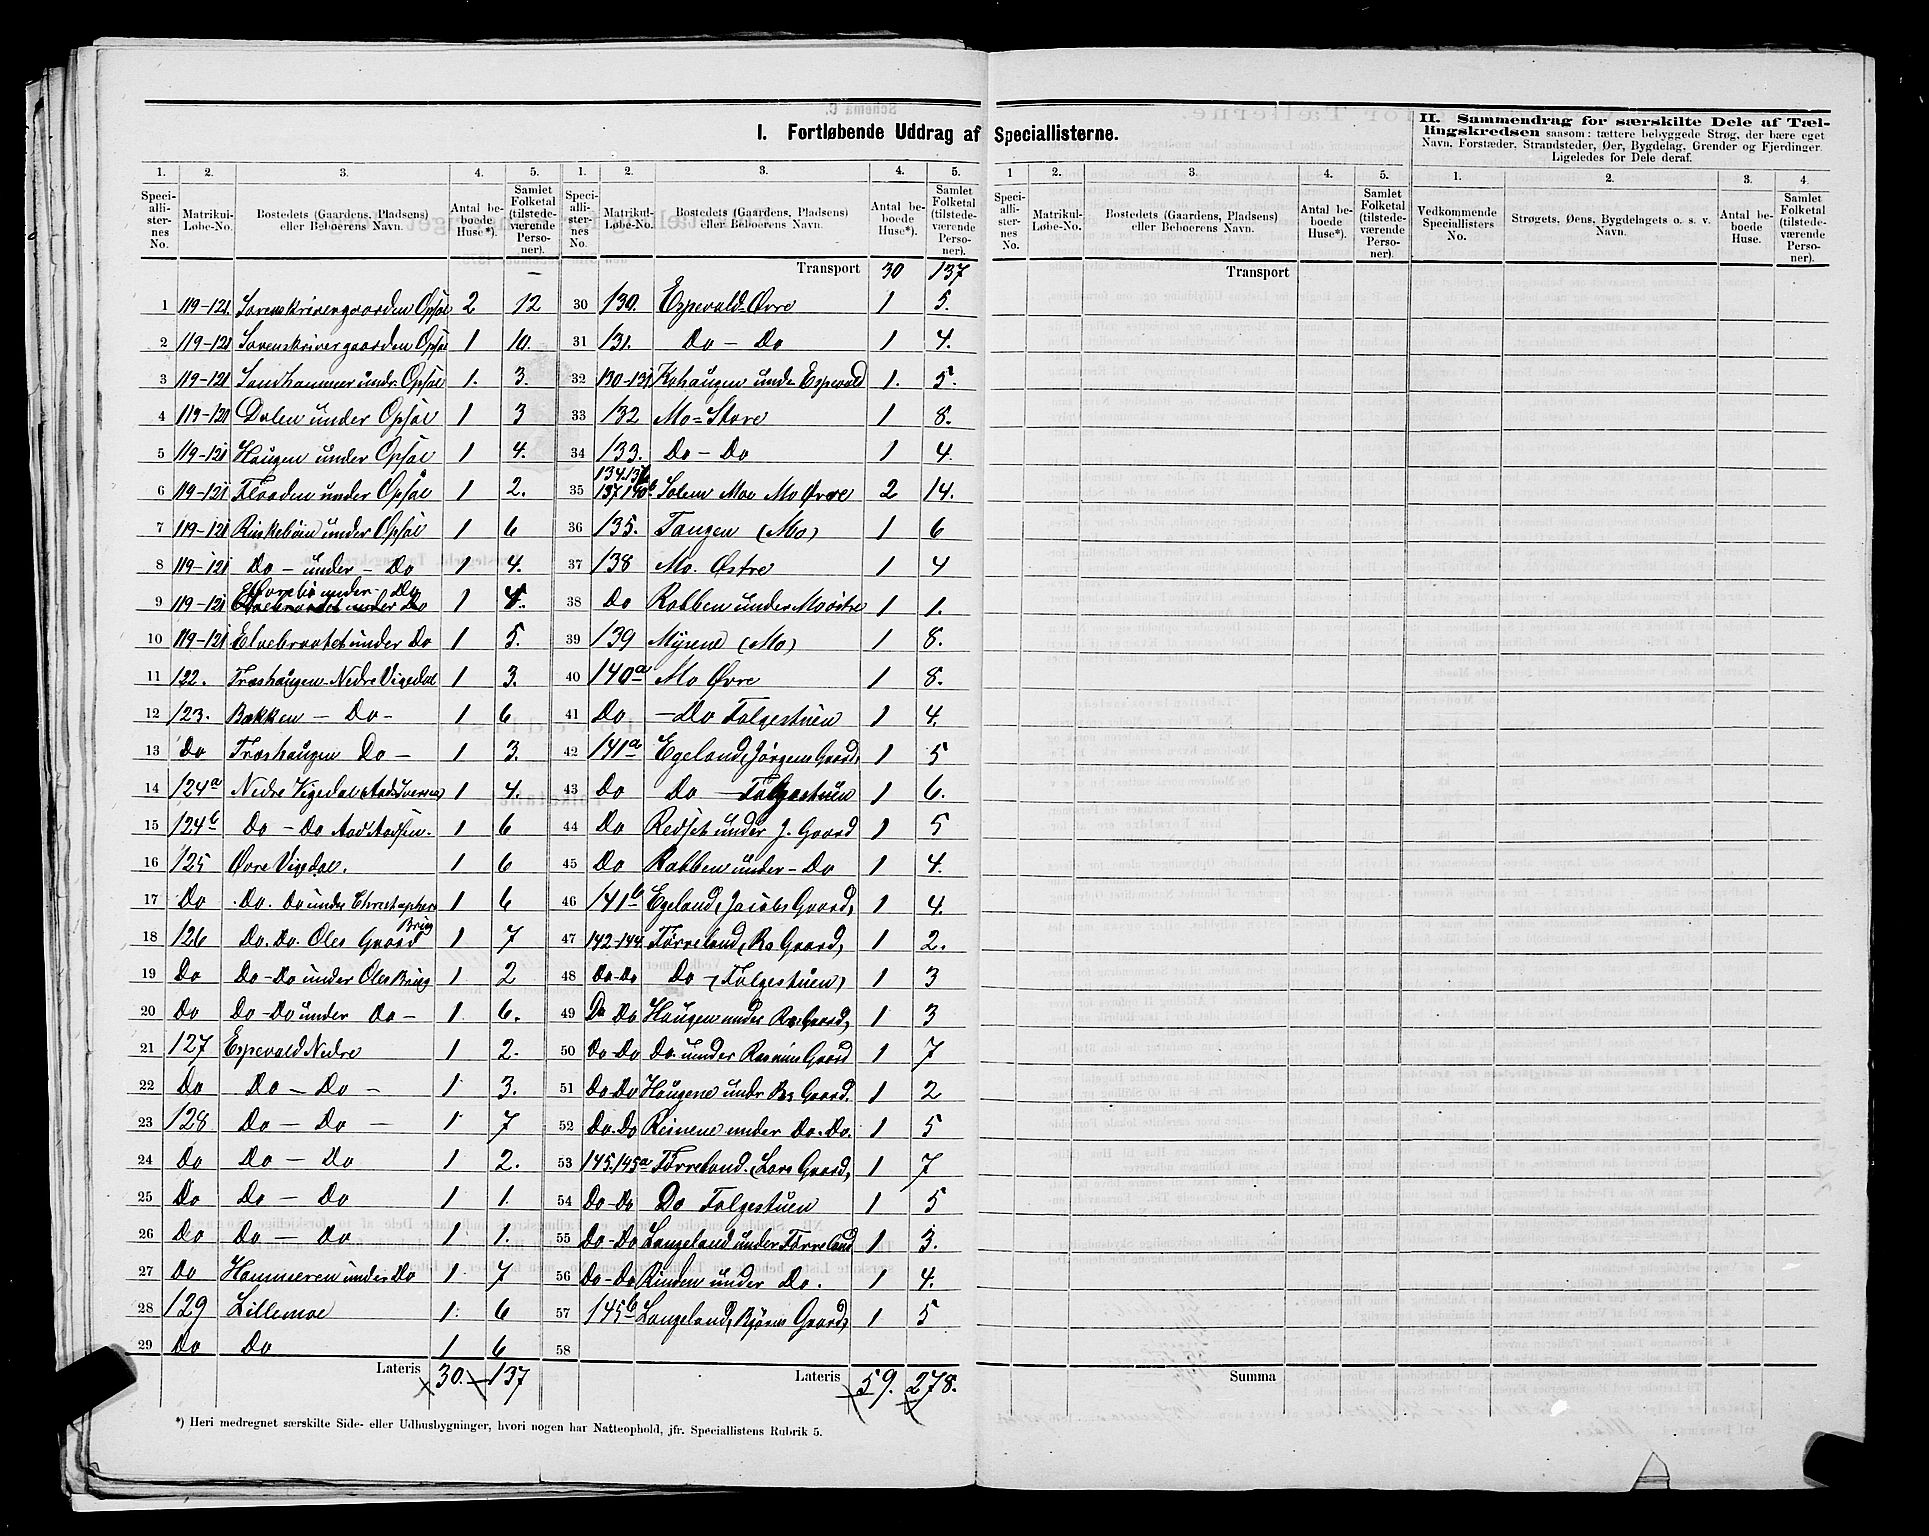 I. Fortløbende Uddrag af Speciallisterne.
II. Sammendrag for særskilte Dele af Tællingskredsen saasom: tættere bebyggede Strøg, der bære eget Navn, Forstæder, Strandsteder, Øer, Bygdelag, Grender og Fjerdinger. Ligeledes for Dele deraf.
1. 2. 3. 4. 5. 1. 2. 3. 4. 5. 1 2. 3. 4. 5. 1. 2. 3. 4.
Speciallisternes No. Matrikul-Løbe-No. Bostedets (Gaardens, Pladsens) eller Beboerens Navn. Antal beboede Huse*). Samlet Folketal (tilstedeværende Personer).
Speciallisternes No. Matrikul-Løbe-No. Bostedets (Gaardens, Pladsens) eller Beboerens Navn. Antal beboede Huse*). Samlet Folketal (tilstedeværende Personer).
Speciallisternes No. Matrikul-Løbe-No. Bostedets (Gaardens, Pladsens) eller Beboerens Navn. Antal beboede Huse*). Samlet Folketal (tilstedeværende Personer).
Vedkommende Speciallisters No. Strøgets, Øens, Bygdelagets o. s. v. Navn. Antal beboede Huse. Samlet Folketal (tilstedeværende Personer).
1 119-121. Sorenskrivergaarden Opsal 2 12
2 119-121 Sorenskrivergaarden Opsal 1 10.
3 119-121 Sandhammer undr. Opsal 1. 3.
4 119-121 Dalen under Opsal 1 3
5 119-121 Haugen under Opsal 1 4.
6 119-121 Flaaden under Opsal 1 2.
7 119-121 Rinkebøen under Opsal 1 6
8 119-121 Do - under - Do 1 4.
9 119-121 under - Do 1
10 119-121 Elvebraatet under Do 1 5.
11 122. Træshaugen Nedre Vigedal 1 3.
12 123. Bakken - Do - 1 6
13 Do Træshaugen Do - 1 3.
14 124a Nedre Vigedal 1 4.
15 124b Do - Do 1 6
16 125 Øvre Vigedal. 1 6
17 Do Do. Do under Christopher 1 6
Brug
18 126 Do. Do. Oles Gaard 1 7
19 Do Do - Do under Oles Brug 1 2
20 Do Do - Do under Do - 1 6.
21 127 Espevald Nedre 1 2.
22 Do Do - Do - 1 3.
23 128 Do - Do - 1 7
24 Do Do - Do 1 2.
25 Do Do - Do 1 1.
26 Do Do - Do 1 1.
27 Do Hammeren under Do 1 7
28 129 Lillemoe 1. 6
29 Do Do 1 6
Lateris 30. - 137
Transport 30 137
30 130. Espevald-Øvre 1 5.
31 131. Do - Do 1 4.
32 130-131 Kohaugen under Espevald 1. 5.
33 132 Mo=Store 1 8.
34 133. Do - Do 1 4
35 134.136 137.140b Solem Moe Mo Øvre 2 14.
36 135. Tangen (Mo) 1 6
37 138 Mo. Østre 1 4
38 Do Rabben under Mo østre 1 1.
39 139 Myrene (Mo) 1 8.
40 140a Mo Øvre 1 8.
41 Do - Do Folgestuen 1 4.
42 141a Egeland, Jørgens Gaard, 1 5
43 Do Do - Folgestuen 1 6.
44 Do Redset under J. Gaard 1 5
45 Do Rabben under - Do 1 4.
46 141b Egeland, Jacobs Gaard, 1 4.
47 142-144. Førreland, Rs Gaard, 1 2.
48 Do-Do Do - (Folgestuen) 1 3
49 Do Do Haugen under Rs Gaard, 1 3
50 Do-Do Do. under Rasmus Gaard 1 7
51 Do-Do Haugene undr Rs Gaard. 1 2
52 Do. Do Reinene under Do. Do. 1 5
53 145.145a Førreland. (Lars Gaard, 1 7
54 Do-Do Do Folgestuen 1 5
55 Do-Do Langeland under Førreland 1 3.
56 Do-Do Rinden under Do. 1 4.
57 145b Langeland, Bjørns Gaard, 1 5
58
Lateris 59. 278.
Transport
Summa
*) Heri medregnet særskilte Side- eller Udhusbygninger, hvori nogen har Natteophold, jfr. Speciallistens Rubrik 5.